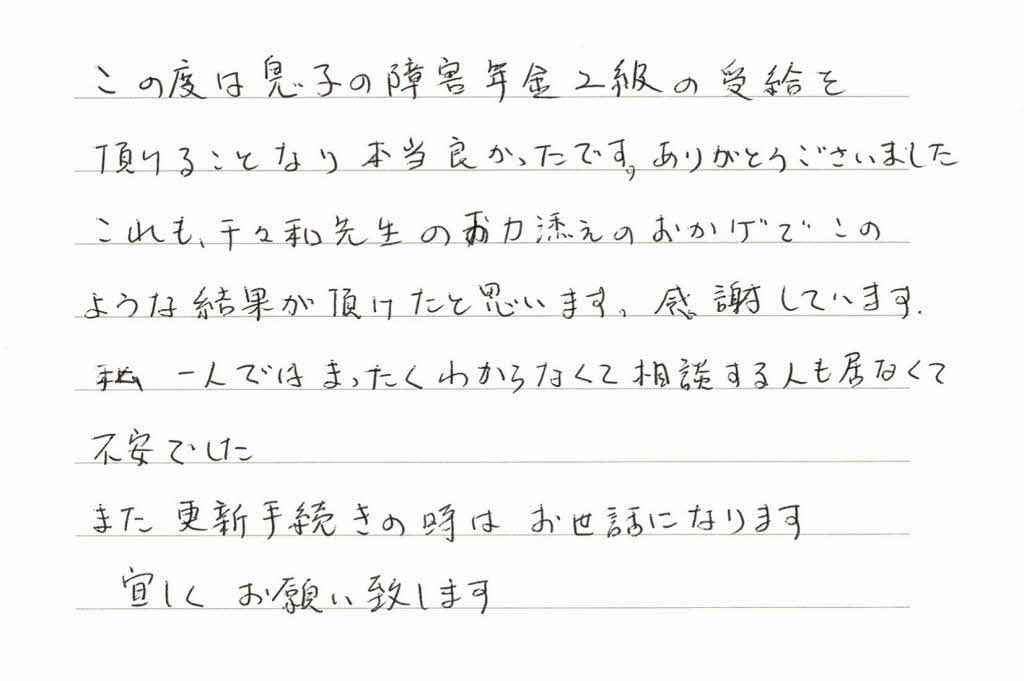 この度は息子の障害年金2級の受給を
頂けることなり本当良かったです。ありがとうございました
これも、千々和先生のお力添えのおかげでこの
ような結果が頂けたと思います。感謝しています.
私 一人ではまったくわからなくて相談する人も居なくて
不安でした
また 更新手続きの時は お世話になります
宜しく お願い致します